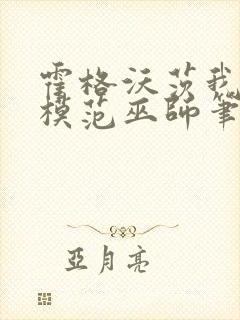 霍格沃茨我
模范巫師筆
亞月亮